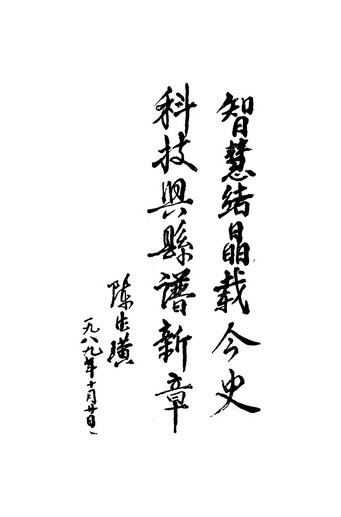 智慧结晶载今史
科技興縣谱新章
陈生璜
一九八九年十月廿日